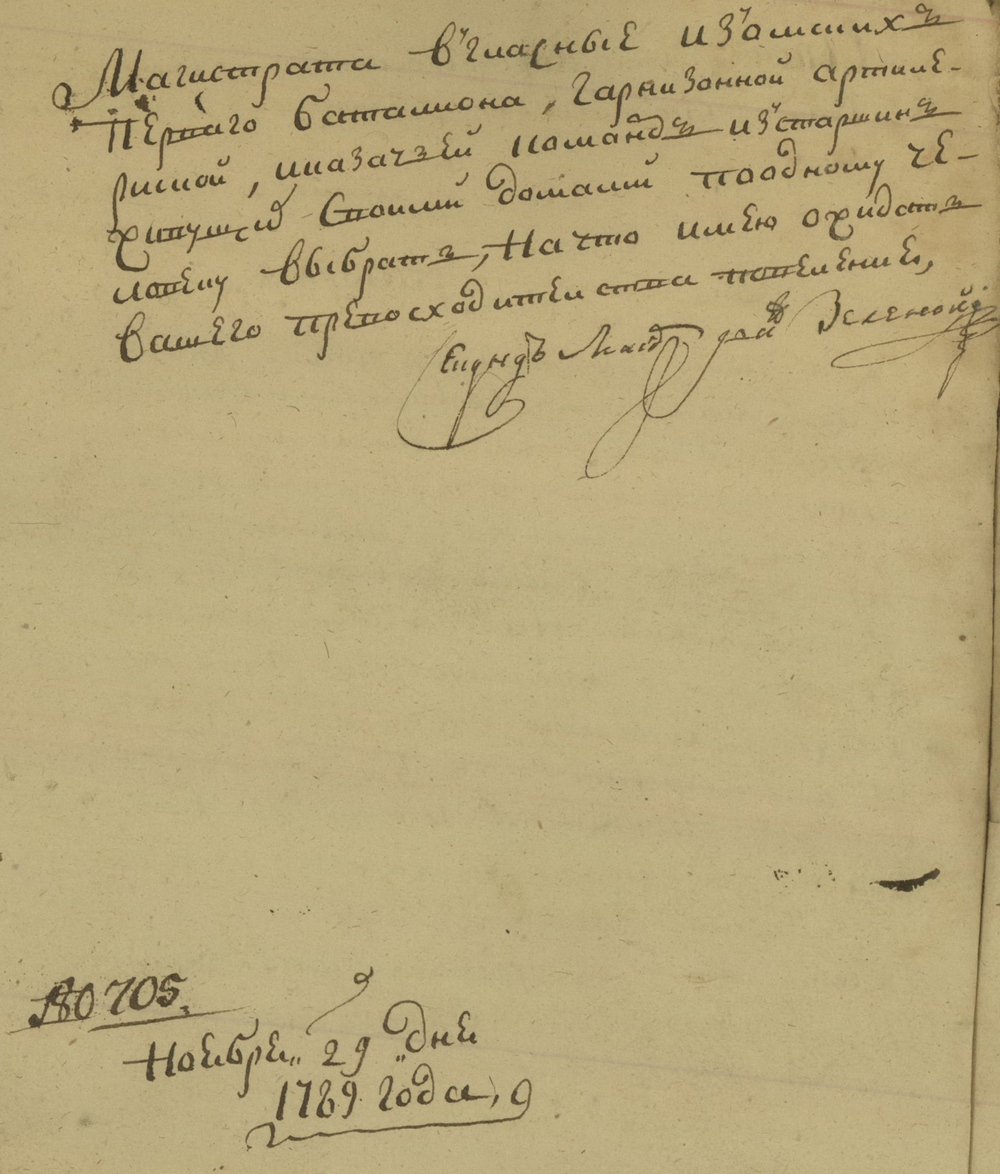 Магистрата в гласные и з омских
первого баталиона, гарнизонной артиле-
риской, и казачей команд из старшин
живущих своими домами по одному че-
ловеку выбрать, на что имею ожидать
вашего превосходительства повеление,
Зеленой
№ 705.
Ноября 29 дня
1789 года,